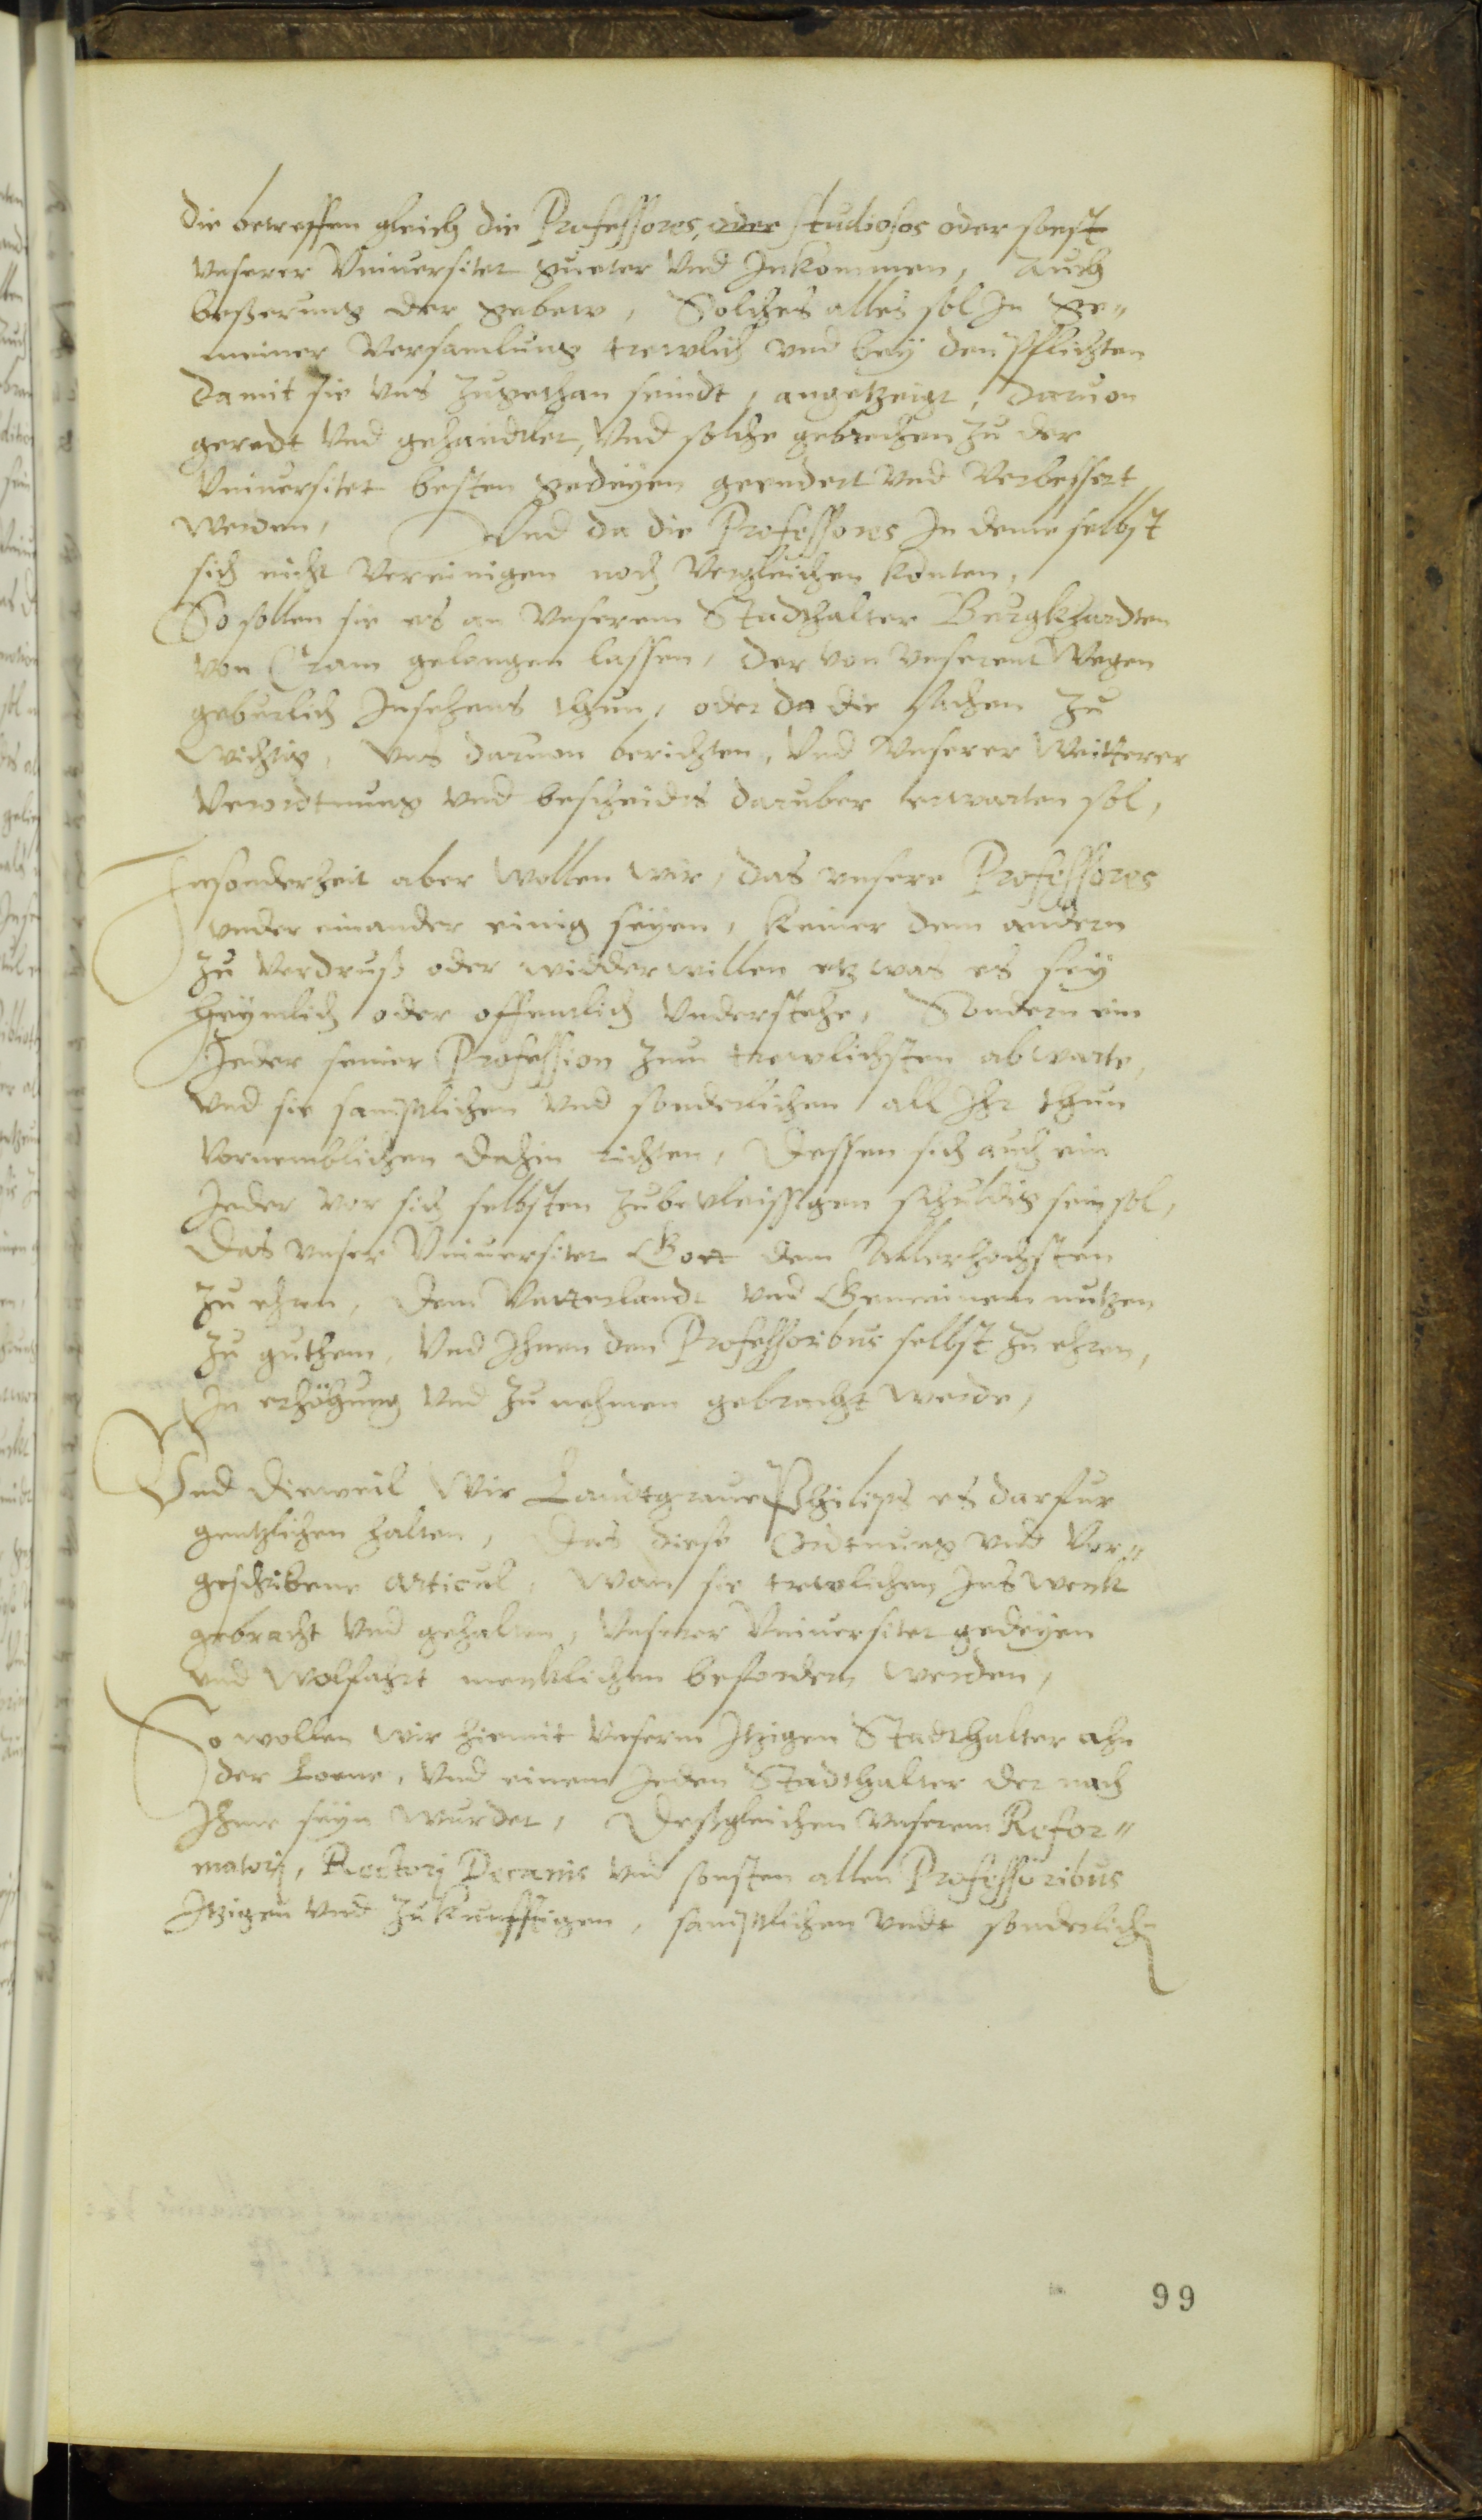 die betreffen gleich die Professores, oder studiosos oder sonst
vnserer Vniuersitet gueter vnd Inkommen, Auch
beßerung der gebew, Solches alles sol In ge-
meiner versamlung trewlich vnd bey den pflichten
damit sie vns zugethan seindt, angetzeigt, daruon
geredt vnd gehandtlet, vnd solche gebrechen zu der
Vniuersitet besten gedeyen geendert vnd verbessert
werden, Vnd da die Professores In deme selbst
sich nicht vereinigen noch vergleichen konten,
So sollen sie es an vnserem Stadthalter Burgkhardten
von Cram gelangen lassen, der von vnserent wegen
geburlich Insehens thun, oder da die sachen zu
wichtig, vns daruon berichten, vnd vnserer weitterer
verordtnung vnd bescheidts daruber erwarten sol,
Insonderheit aber wollen wir, das vnsere Professores
vnder einander einig seyen, keiner dem andern
zu verdruß oder widderwillen etzwas es sey
heymlich oder offentlich vnderstehe, Sondern ein
Jeder seiner Profession zum trewlichsten abwarte,
vnd sie samptlichen vnd sonderlichen all Ihr thun
vornemblichen dahin richten, Dessen sich auch ein
Jeder vor sich selbsten zubevleissigen schuldig sein sol,
Das vnser Vniuersitet Gott dem Allerhochsten
zu ehren, dem Vatterlandt vnd Gemeinem nutzen
zu guthem, vnd Ihnen den Professoribus selbst zu ehren,
In erhöhung vnd zu nehmen gebracht werde,
Vnd dieweil Wir Landtgraue Philips es darfur
gentzlichen halten, Das diese Ordtnung vnd vor-
geschribene articul, wan sie trewlichen Ins werk
gebracht vnd gehalten, vnserer Vniuersitet gedeyen
vnd wolfahrt mercklichen befordern werden,
So wollen wir hiemit vnserm Itzigen Stadthalter ahn
der Loene, vnd einem Jeden Stadthalter der nach
Ihme seyn wurdet, Deßgleichen vnserem Refor-
matorj, Rectorj Decanis vnd sonsten allen Professoribus
Itzigen vnd zukunfftigen, samptlichen vndt sonderlichen
99